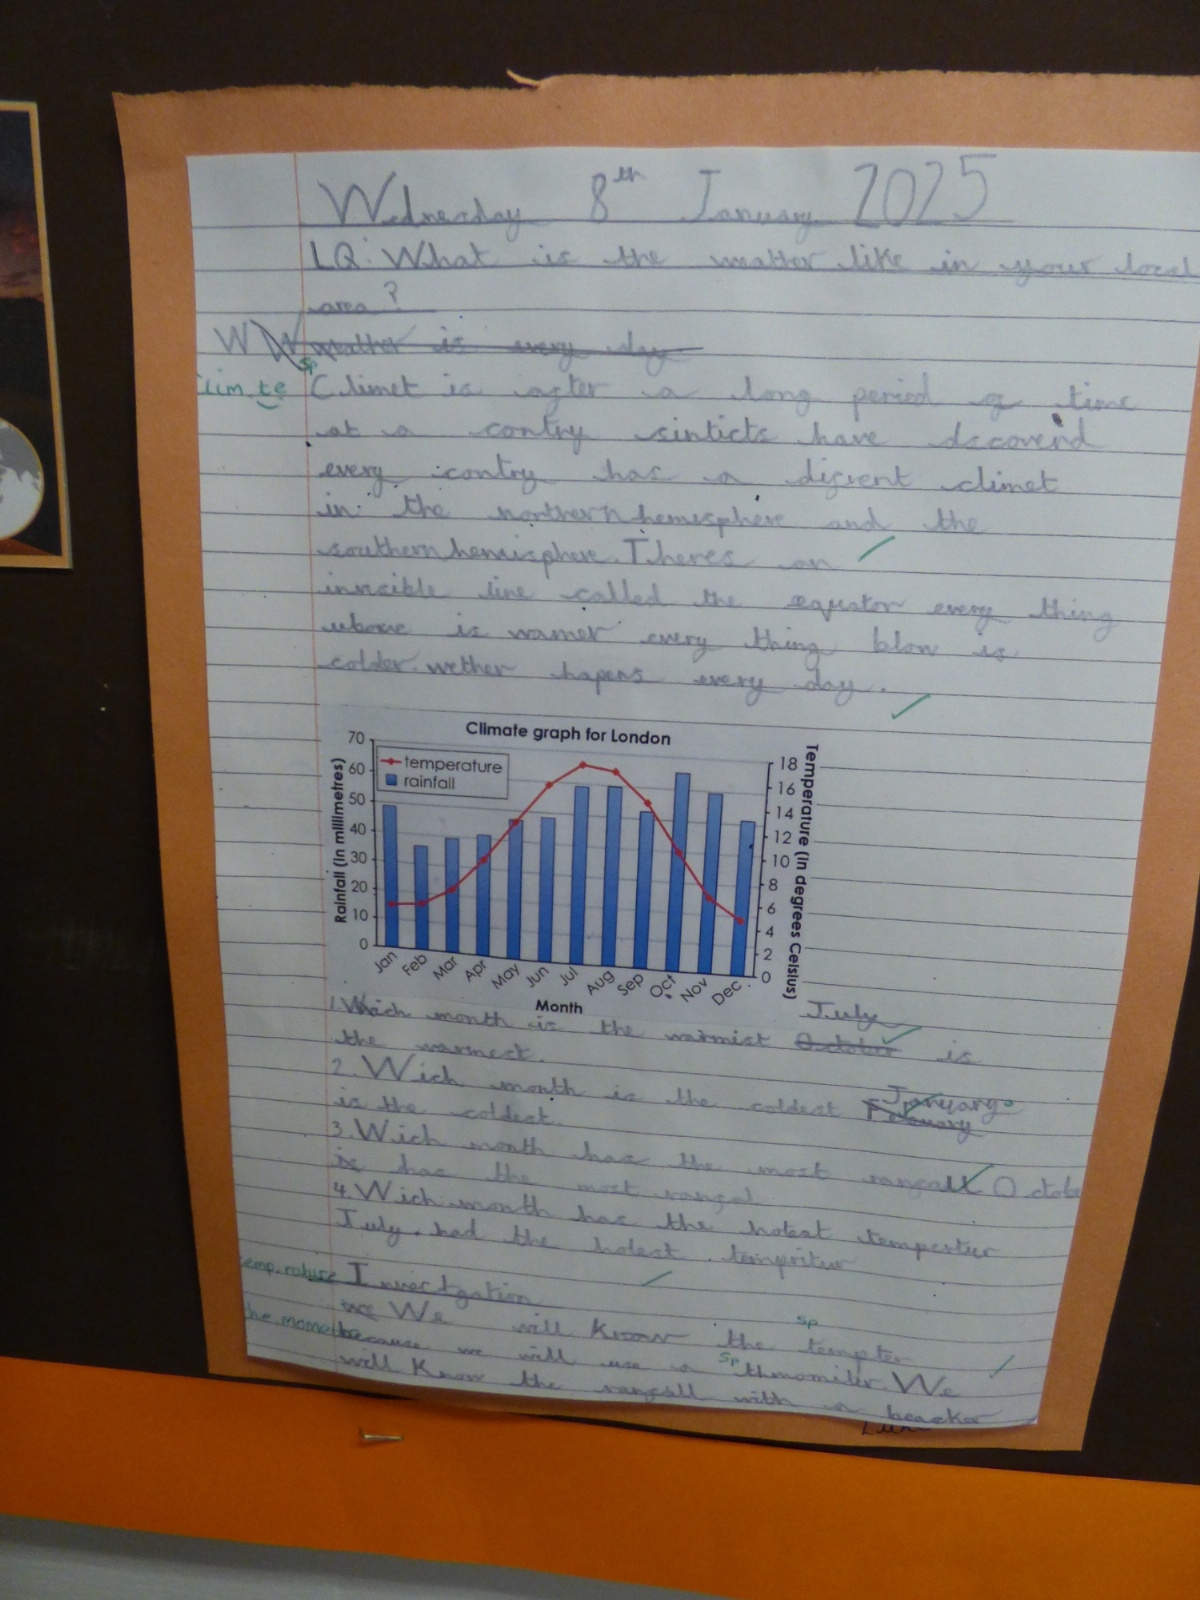 Wednesday 8th January 2025
LQ: What is the matter like in your local
area?
W W weather is every day
sp
Clim_te Climet is after a long period of time
at a contry sinticts have dscoverd
every contry has a difrent climet
in the northern hemisphere and the
southern hemisphere. Theres an
invisible line called the equator every thing
above is warmer every thing blow is
colder. wether hapens every day.
Climate graph for London
temperature
rainfall
Rainfall (in millimetres)
70
60
50
40
30
20
10
0
Temperature (in degrees Celsius)
18
16
14
12
10
8
6
4
2
0
Jan Feb Mar Apr May Jun Jul Aug Sep Oct Nov Dec
Month
July
1. Which month is the warmist October is
the warmest.
January
2. Wich month is the coldest Febuary
is the coldest.
3. Wich month has the most rangall Octobe
is has the most rangal
4. Wich month has the hotest tempertur
July. had the hotest tempritur
Investgation
We will Know the tempter
sp
because we will use a thmomiter. We
sp
will Know the rangall with a beacker